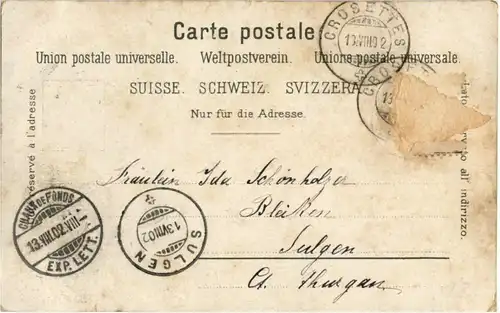 Carte postale
Union postale universelle. Weltpostverein. Unione postale universale.
SUISSE. SCHWEIZ. SVIZZERA
Nur für die Adresse.
réservé à l'adresse
lato servito all' indirizzo.
CROSETTES
13.VIII.02
CROSET
13
Fräulein Ida Schönholzer
Bleiken
Sulgen
Ct. Thurgau
CHAUX DE FONDS
13.VIII.02.VIII-
EXP. LETT.
13.VIII.02
SULGEN